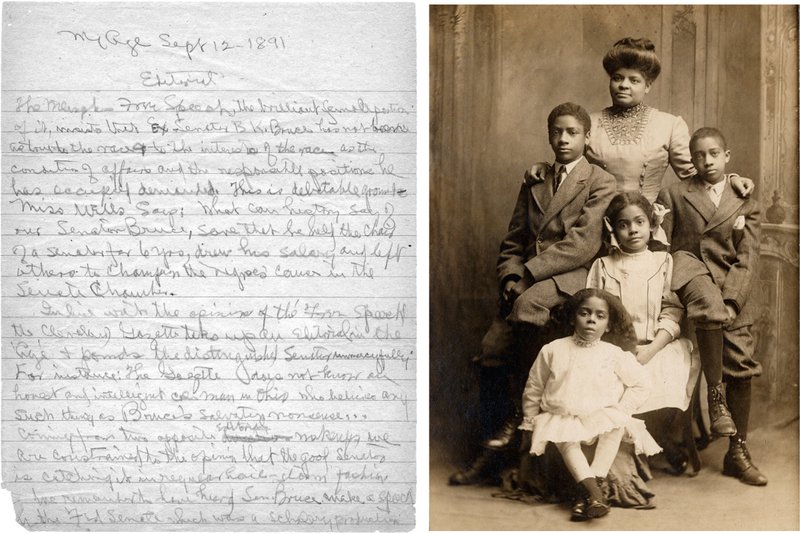 My Age Sept 12-1891
Editorial
The Memphis Free Speech, the brilliant female editor
of it, insists that Ex Senator B. K. Bruce has not been
as true to the race to the interests of the race as the
condition of affairs and the responsible positions he
has occupied demanded. This is debatable ground
Miss Wells Says: What can history say of
our Senator Bruce, save that he held the chair
of a senator for 6 yrs, drew his salary and left
others to champion the negroes cause in the
Senate Chamber.
In line with the opinion of the Free Speech
the Cleveland Gazette takes up an Editorial in the
Age & pounds the distinguished Senator unmercifully
For instance: The Gazette does not know an
honest and intelligent col man in this who believes any
such thing as Bruce's Salvation nonsense...
Coming from this opposite editorial makeups we
are constrained to the opinion that the good Senator
is catching it in regular hail storm fashion
too remember to have heard Sen Bruce make a speech
in the Fed Senate which was a scholarly